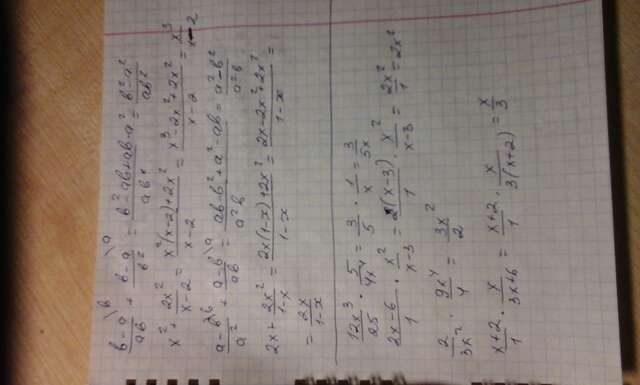 (b-a)/(ab) \b + (b-a)/(b²) \a = (b²-ab+ab-a²)/(ab²) = (b²-a²)/(ab²)
x² + (2x²)/(x-2) = (x²(x-2)+2x²)/(x-2) = (x³-2x²+2x²)/(x-2) = x³/(x-2)
(a-b)/(a²) \b + (a-b)/(ab) \a = (ab-b²+a²-ab)/(a²b) = (a²-b²)/(a²b)
2x + (2x²)/(1-x) = (2x(1-x)+2x²)/(1-x) = (2x-2x²+2x²)/(1-x) =
= (2x)/(1-x)
(12x³)/25 · 5/(4x⁴) = 3/5 · 1/x = 3/(5x)
(2x-6)/1 · x²/(x-3) = (2(x-3))/1 · x²/(x-3) = (2x²)/1 = 2x²
2/(3x²) · (9x⁴)/4 = (3x²)/2
(x+2)/1 · x/(3x+6) = (x+2)/1 · x/(3(x+2)) = x/3